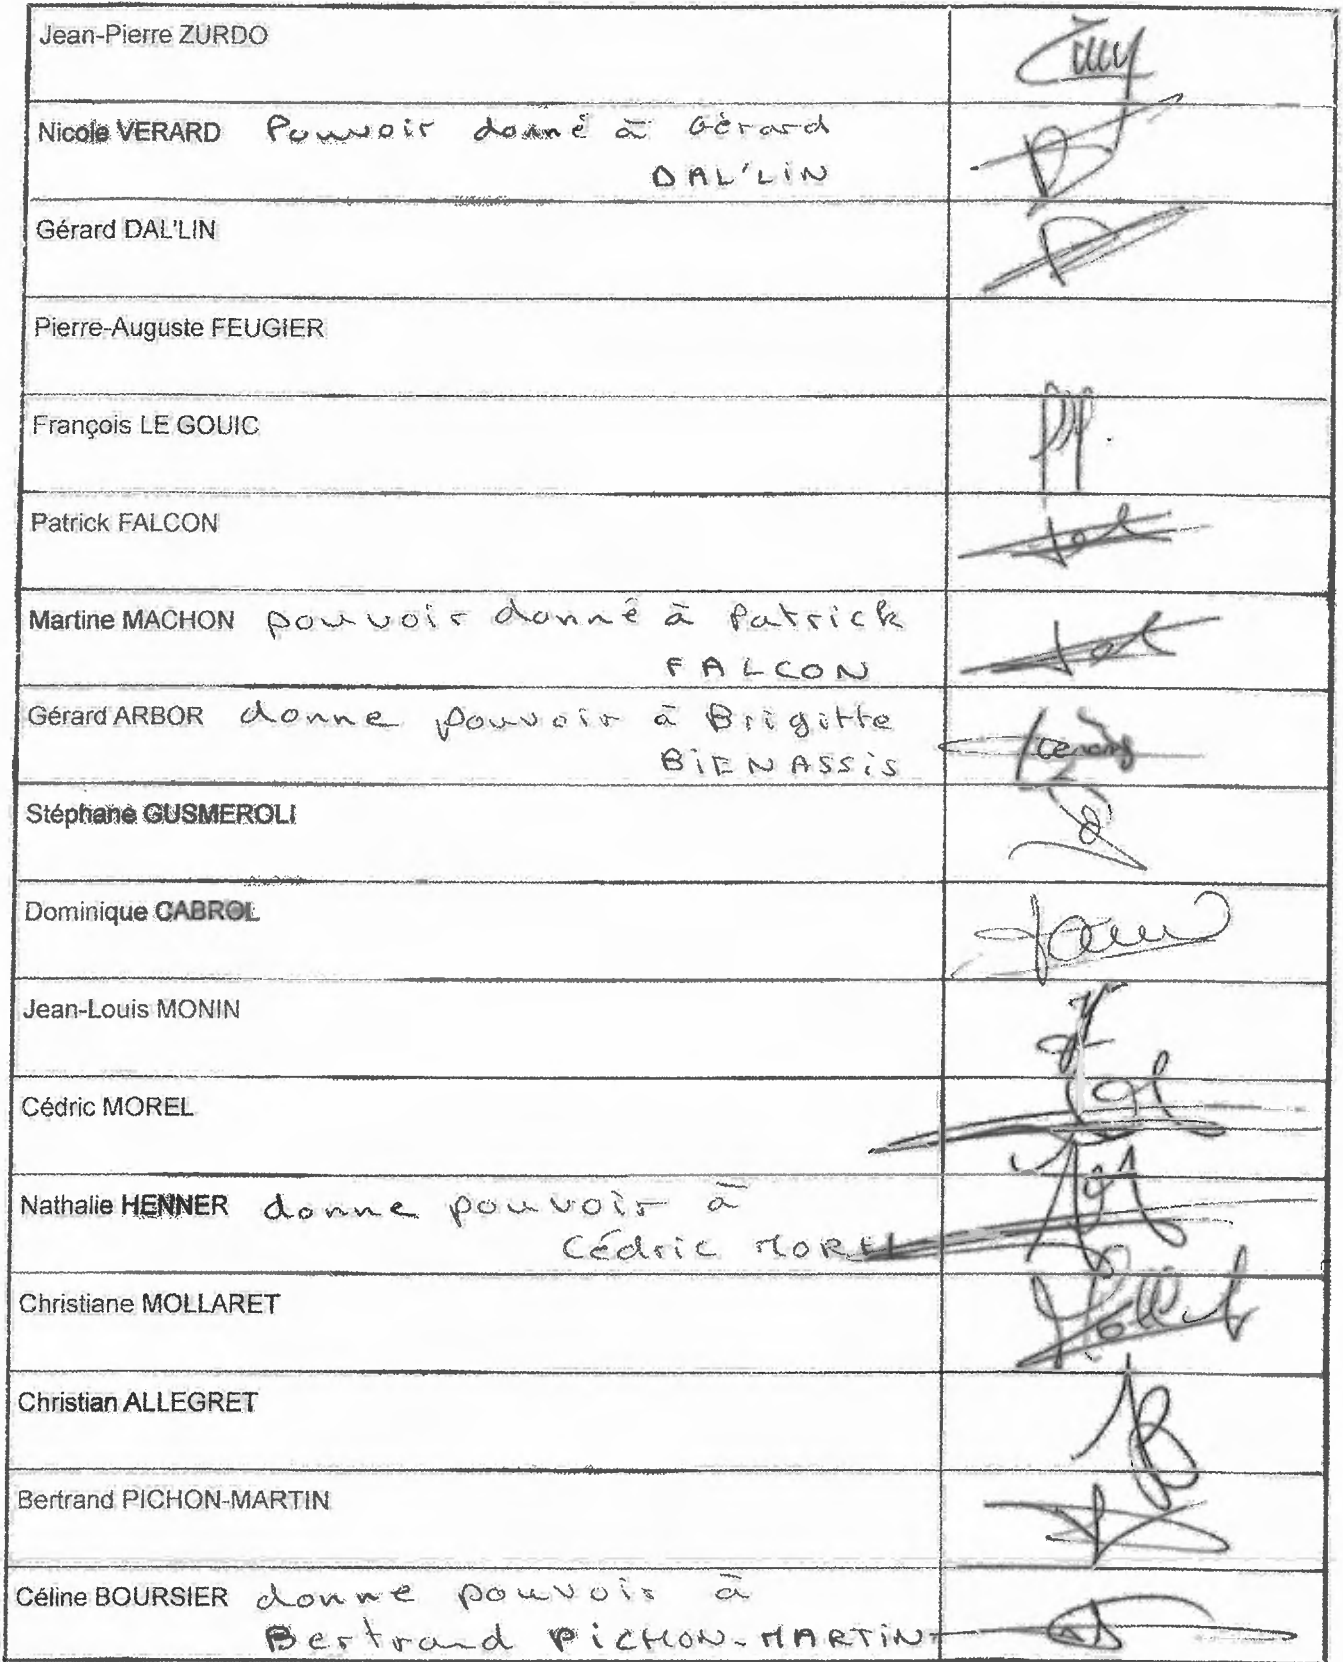 Jean-Pierre ZURDO
Nicole VERARD Pouvoir donné à Gérard
DAL'LIN
Gérard DAL'LIN
Pierre-Auguste FEUGIER
François LE GOUIC
Patrick FALCON
Martine MACHON pouvoir donné à Patrick
FALCON
Gérard ARBOR donne pouvoir à Brigitte
BIENASSIS
Stéphane GUSMEROLI
Dominique CABROL
Jean-Louis MONIN
Cédric MOREL
Nathalie HENNER donne pouvoir à
Cédric MOREL
Christiane MOLLARET
Christian ALLEGRET
Bertrand PICHON-MARTIN
Céline BOURSIER donne pouvoir à
Bertrand PICHON-MARTIN